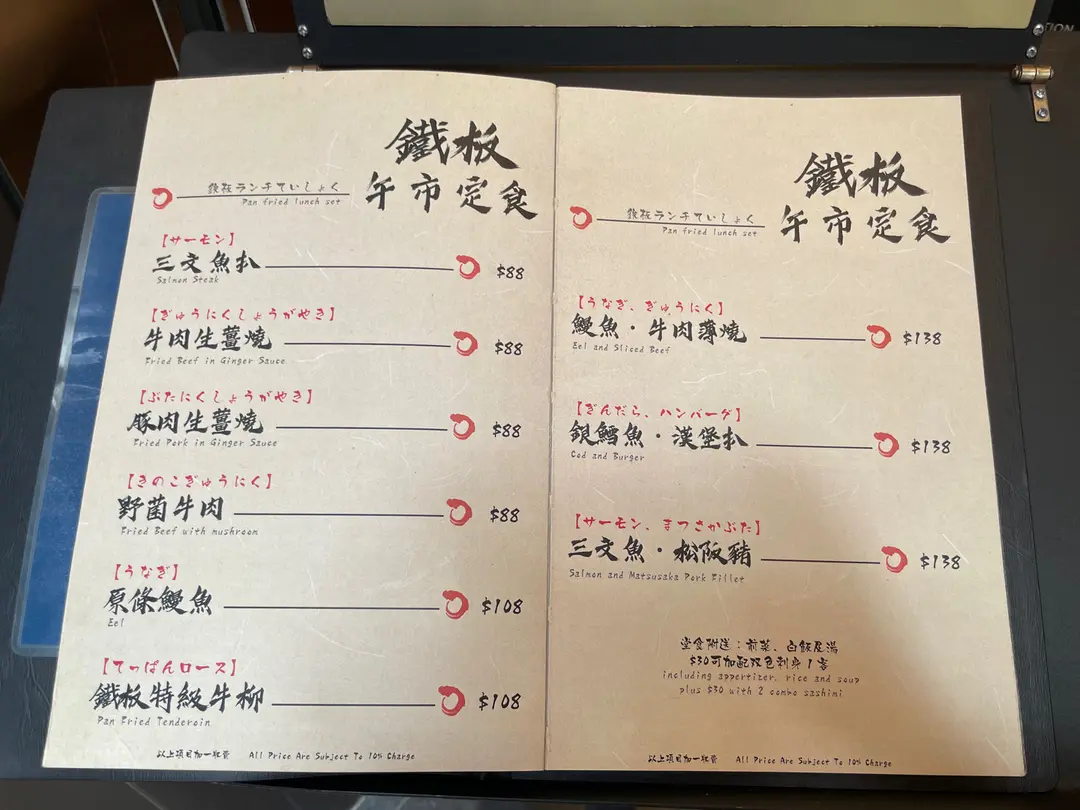 鐵板
午市定食
鉄板ランチていしょく
Pan fried lunch set
【サーモン】
三文魚扒 $88
Salmon Steak
【ぎゅうにくしょうがやき】
牛肉生薑燒 $88
Fried Beef in Ginger Sauce
【ぶたにくしょうがやき】
豚肉生薑燒 $88
Fried Pork in Ginger Sauce
【きのこぎゅうにく】
野菌牛肉 $88
Fried Beef with mushroom
【うなぎ】
原條鰻魚 $108
Eel
【てっぱんロース】
鐵板特級牛柳 $108
Pan Fried Tenderoin
以上項目加一收費 All Price Are Subject To 10% Charge
鐵板
午市定食
鉄板ランチていしょく
Pan fried lunch set
【うなぎ、ぎゅうにく】
鰻魚・牛肉薄燒 $138
Eel and Sliced Beef
【ぎんだら、ハンバーグ】
銀鱈魚・漢堡扒 $138
Cod and Burger
【サーモン、まつさかぶた】
三文魚・松阪豬 $138
Salmon and Matsusaka Pork Fillet
堂食附送：前菜、白飯及湯
$30可加配双色刺身1客
including appertizer, rice and soup
plus $30 with 2 combo sashimi
以上項目加一收費 All Price Are Subject To 10% Charge